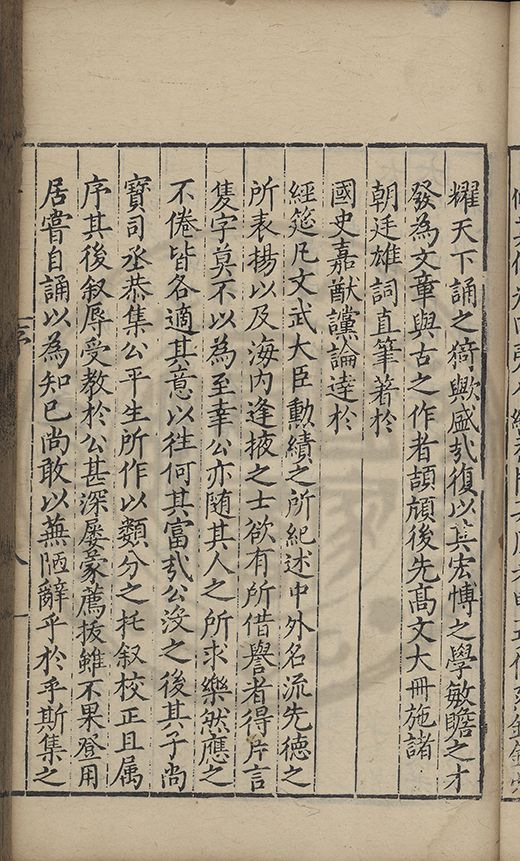 耀天下誦之猗歟盛㢤復以其宏愽之學敏贍之才
發為文章與古之作者頡頏後先髙文大冊施諸
朝廷雄詞直筆著於
國史嘉猷讜論逹於
經筵凡文武大臣勳績之所紀述中外名流先德之
所表揚以及海内逢掖之士欲有所借譽者得片言
隻字莫不以為至幸公亦随其人之所求樂然應之
不倦皆各適其意以徃何其富㢤公没之後其子尚
寳司丞恭集公平生所作以類分之托叙校正且属
序其後叙辱受教於公甚深屢蒙薦拔雖不果登用
居嘗自誦以為知已尚敢以蕪陋辭乎於乎斯集之
序